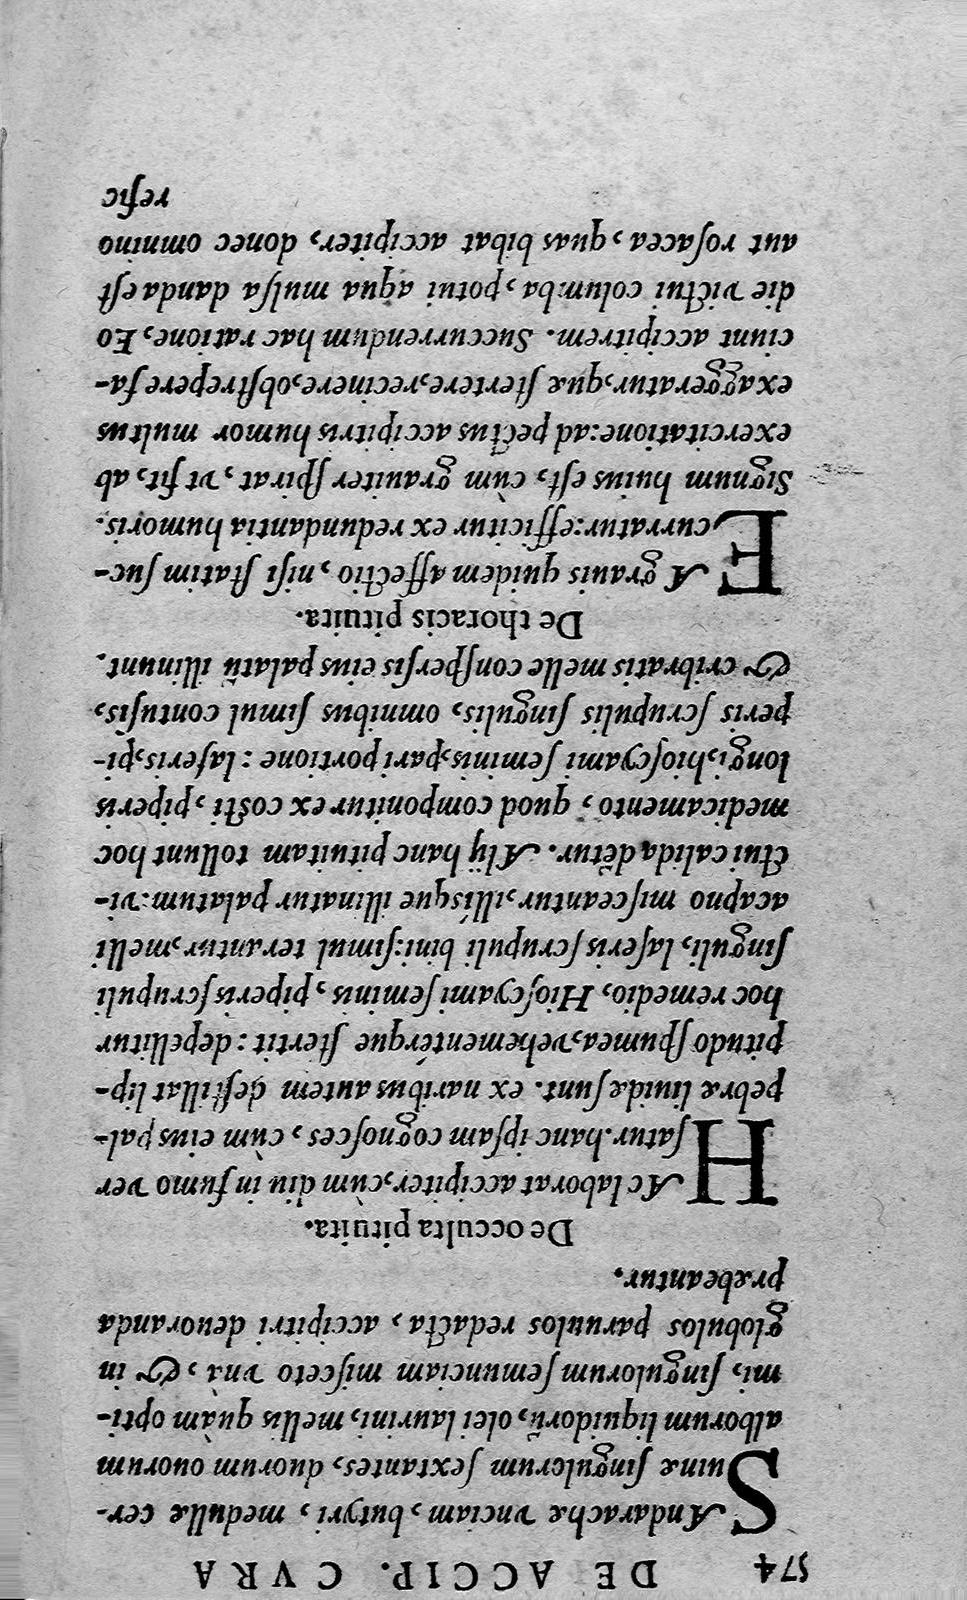 574 DE ACCIP. CVRA
SAndarachæ vnciam, butyri, medullæ cer-
uinæ singulorum sextantes, duorum ouorum
alborum liquidorũ, olei laurini, mellis quàm opti-
mi, singulorum semunciam misceto vnà, & in
globulos paruulos redacta, accipitri deuoranda
præbeantur.
De occulta pituita.
HAc laborat accipiter, cùm diu in fumo ver
satur. hanc ipsam cognosces, cùm eius pal-
pebræ liuidæ sunt. ex naribus autem destillat lip-
pitudo spumea, vehementérque stertit: depellitur
hoc remedio, Hioscyami seminis, piperis scrupuli
singuli, laseris scrupuli bini: simul terantur, melli
acapno misceantur, illísque illinatur palatum: vi-
ctui calida dẽtur. Alij hanc pituitam tollunt hoc
medicamento, quod componitur ex costi, piperis
longi, hioscyami seminis, pari portione: laseris, pi-
peris scrupulis singulis, omnibus simul contusis,
& cribratis melle conspersis eius palatũ illinunt.
De thoracis pituita.
EA grauis quidem affectio, nisi statim suc-
curratur: efficitur ex redundantia humoris.
Signum huius est, cùm grauiter spirat, vt fit, ab
exercitatione: ad pectus accipitris humor multus
exaggeratur, quæ stertere, recinere, obstrepere fa-
ciunt accipitrem. Succurrendum hac ratione, Eo
die victui columba, potui aqua mulsa danda est
aut rosacea, quas bibat accipiter, donec omnino
refic